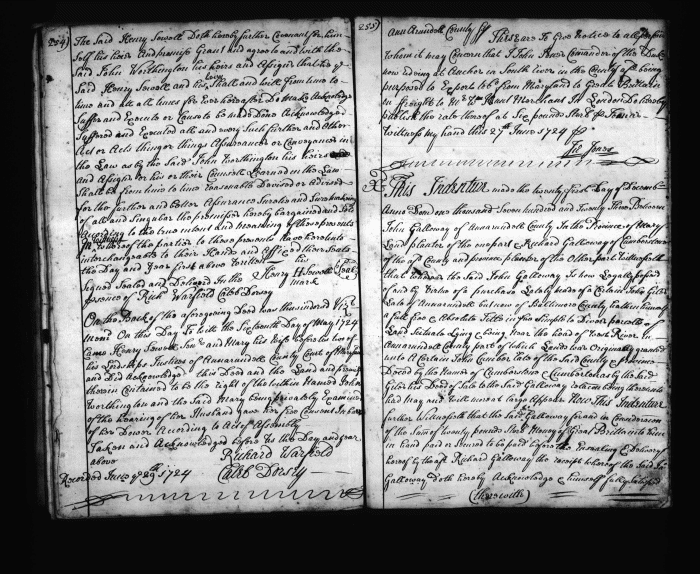 254)
The Said Henry Sewall Doth hereby further Covenant for him
Self his heirs and promiss Grant and agree to and with the
Said John Worthington his heirs and Assigns that he ye
Said Henry Sewall and his heirs Shall and will from time to
time and att all times for Ever hereafter Do make Acknowledge
Suffer and Execute or Cause to be made Done Acknowledged
Suffered and Executed all and every Such further and Other
Act or Acts thing or things Assurance or Conveyances in
the Law as by the Said John Worthington his heirs
and Assigns his or their Councill Learned in the Law
Shall be from time to time reasonable Devised or Advised
for the further and better Assurance Surety and Sure making
of all and Singular the premisses hereby bargained and Sold
According to the true intent and meaning of these presents
In Witness whereof the parties to these presents have
interchangeable to their Hands and Affixed their Seals
the Day and Year first above written
Signed Sealed and Delivered In the Henry H Sewall Seal
his
presence of Rich Warfield Caleb Dorsey mark
On the Back of the aforegoing Deed was thus indorsed Viz
On this Day To wit the Sixteenth Day of May 1724
Came Henry Sewall Son and Mary his Wife before us two of
his Lordships Justices of Annarundell County Court of Maryland
and Did Acknowledge this Deed and the Land and premises
therein Contained to be the right of the within Named John
Worthington and the Said Mary being privately Examined
of the hearing of her Husband gave her free Consent
of her Dower According to Act of Assembly
Taken and Acknowledged before Us the Day and year
above
Richard Warfield
Caleb Dorsey
Recorded June ye 29th 1724
255)
Ann Arundell County ss These are To Give Notice to all persons
whom it may Concern that I John Comander of the
now Riding at Anchor in South River in the County afd being
purposed to Export tobo from Maryland to Great Brittain
on freight to Mr Wm Hunt Merchant In London Do hereby
publish the rate thereof at Six pounds Sterl p Tunn
witness my hand this 27th June 1724
This Indenture made the twenty first Day of Decemb
Anno Dom one thousand Seven hundred and Twenty Three Between
John Galloway of Annarundell County In the Province of Mary
Land planter of the one part & Richard Galloway of Cumberstone
of the afd County and province planter of the Other part Witnesseth
that whereas the Said John Galloway Is now Legally possest
of and by Virtue of a purchase Lately made of a Certain John Giles
Late of Annarundell but now of Baltimore County hath in himself
a full free & Absolute Title in fee Simple to Divers parcells of
Land Situate Lying & being Near the head of West River In
Annarundell County part of which Lands was Originally granted
unto A Certain John Cumber Late of the Said County & province
Deced by the Names of Cumberstone & Cumberton as by the Said
Giles his Deed of Sale to the Said Galloway relation being thereunto
had May and will more at large Appear Now This Indenture
further Witnesseth that the Said Galloway for and in Consideration
of the Sum of twenty pounds Sterl Money of Great Brittain to him
in hand paid or Secured to be paid before the Ensealing & Delivery
hereof by the afd Richard Galloway the receipt whereof the Said Jno
Galloway doth hereby Acknowledge & himself fully Satisfied
(therewith)